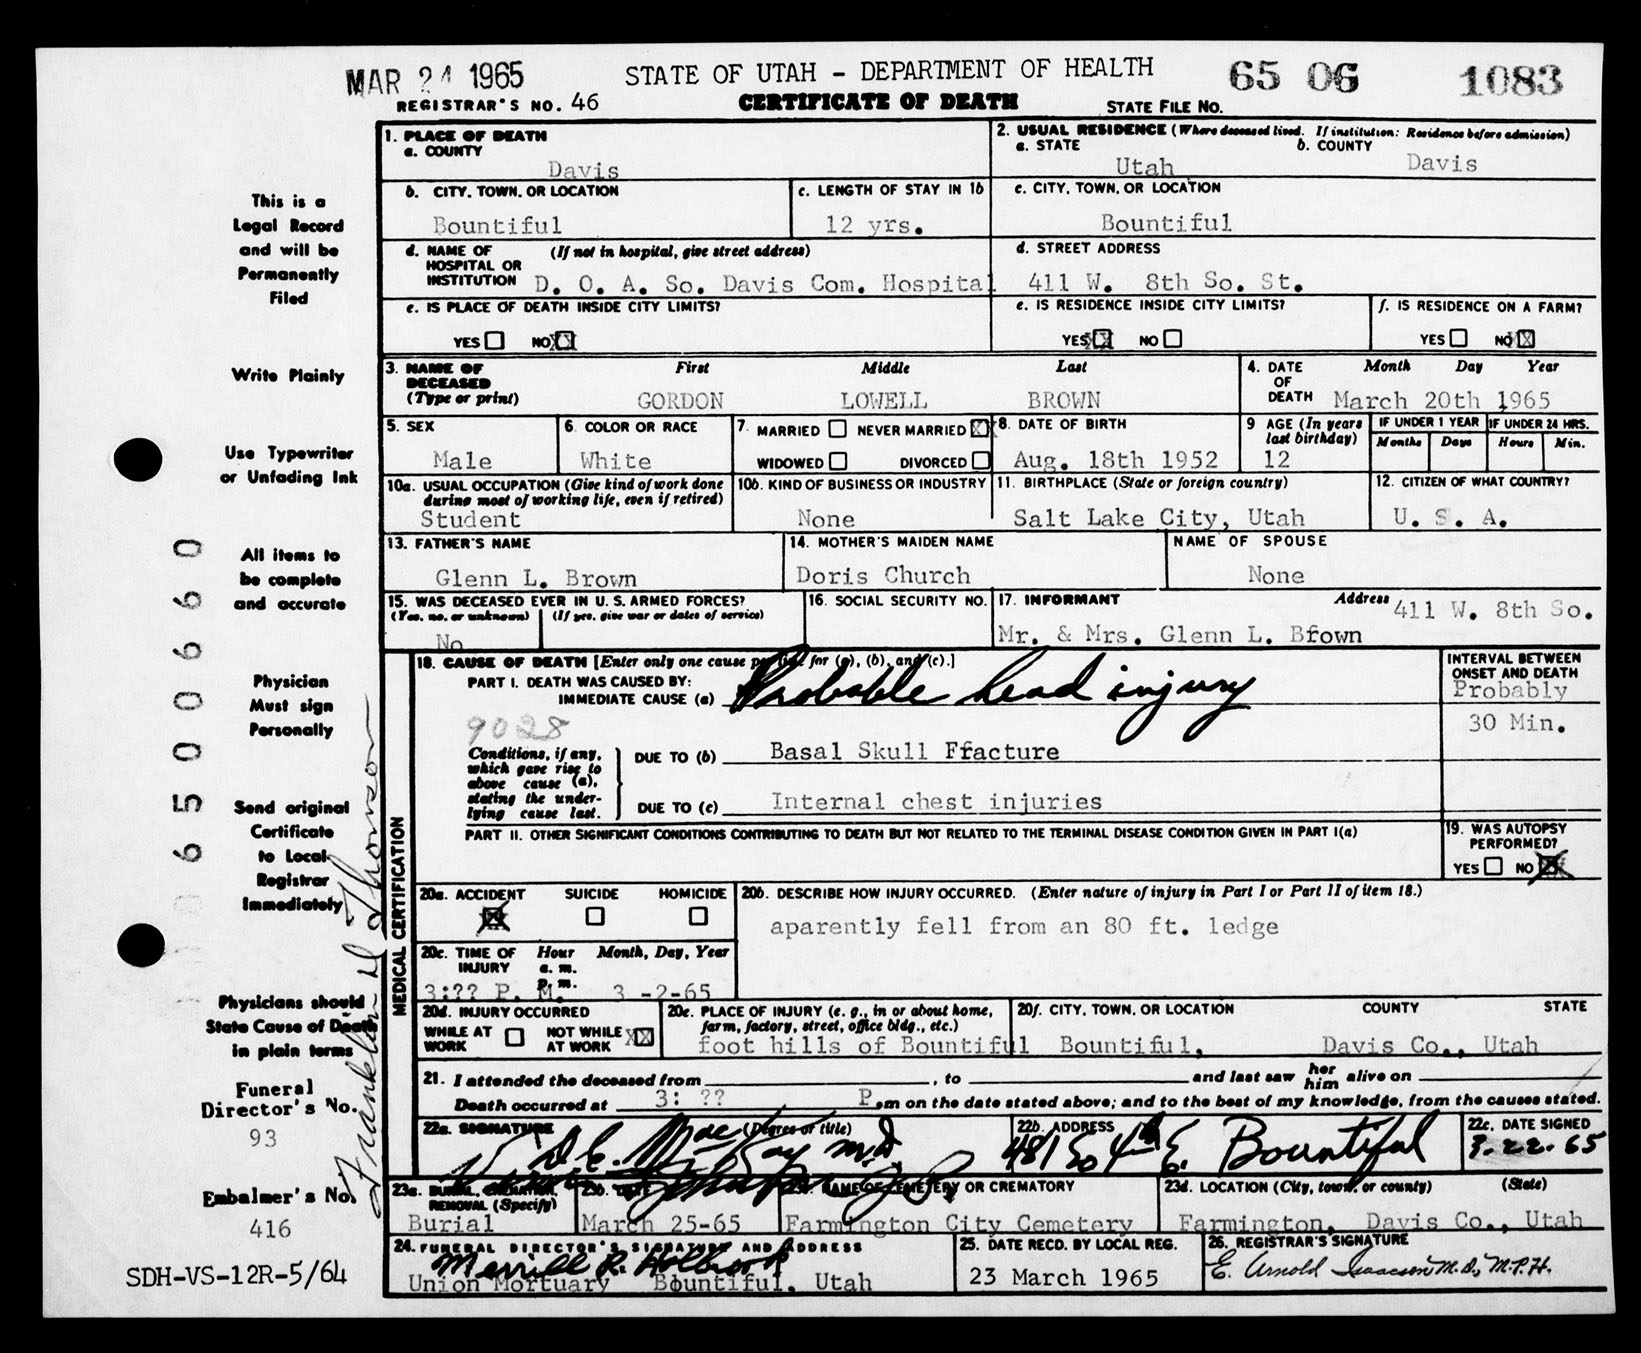 MAR 24 1965 STATE OF UTAH - DEPARTMENT OF HEALTH 65 06 1083
REGISTRAR'S NO. 46 CERTIFICATE OF DEATH STATE FILE NO.
1. PLACE OF DEATH
a. COUNTY
Davis
2. USUAL RESIDENCE (Where deceased lived. If institution: Residence before admission)
a. STATE b. COUNTY
Utah Davis
b. CITY, TOWN, OR LOCATION
Bountiful
c. LENGTH OF STAY IN 1b
12 yrs.
c. CITY, TOWN, OR LOCATION
Bountiful
d. NAME OF (If not in hospital, give street address)
HOSPITAL OR
INSTITUTION D. O. A. So. Davis Com. Hospital
d. STREET ADDRESS
411 W. 8th So. St.
e. IS PLACE OF DEATH INSIDE CITY LIMITS?
YES NO
e. IS RESIDENCE INSIDE CITY LIMITS?
YES NO
f. IS RESIDENCE ON A FARM?
YES NO
3. NAME OF First Middle Last
DECEASED
(Type or print) GORDON LOWELL BROWN
4. DATE Month Day Year
OF
DEATH March 20th 1965
5. SEX
Male
6. COLOR OR RACE
White
7. MARRIED NEVER MARRIED
WIDOWED DIVORCED
8. DATE OF BIRTH
Aug. 18th 1952
9 AGE (In years
last birthday)
12
IF UNDER 1 YEAR IF UNDER 24 HRS.
Months Days Hours Min.
10a. USUAL OCCUPATION (Give kind of work done
during most of working life, even if retired)
Student
10b. KIND OF BUSINESS OR INDUSTRY
None
11. BIRTHPLACE (State or foreign country)
Salt Lake City, Utah
12. CITIZEN OF WHAT COUNTRY?
U. S. A.
13. FATHER'S NAME
Glenn L. Brown
14. MOTHER'S MAIDEN NAME
Doris Church
NAME OF SPOUSE
None
15. WAS DECEASED EVER IN U. S. ARMED FORCES?
(Yes, no, or unknown) (If yes, give war or dates of service)
No
16. SOCIAL SECURITY NO.
17. INFORMANT Address 411 W. 8th So.
Mr. & Mrs. Glenn L. Brown
MEDICAL CERTIFICATION
18. CAUSE OF DEATH [Enter only one cause per line for (a), (b), and (c).]
PART I. DEATH WAS CAUSED BY:
IMMEDIATE CAUSE (a) Probable head injury
9028
Conditions, if any,
which gave rise to
above cause (a),
stating the under-
lying cause last.
DUE TO (b) Basal Skull Fracture
DUE TO (c) Internal chest injuries
INTERVAL BETWEEN
ONSET AND DEATH
Probably
30 Min.
PART II. OTHER SIGNIFICANT CONDITIONS CONTRIBUTING TO DEATH BUT NOT RELATED TO THE TERMINAL DISEASE CONDITION GIVEN IN PART I(a)
19. WAS AUTOPSY
PERFORMED?
YES NO
20a. ACCIDENT SUICIDE HOMICIDE
20b. DESCRIBE HOW INJURY OCCURRED. (Enter nature of injury in Part I or Part II of item 18.)
aparently fell from an 80 ft. ledge
20c. TIME OF Hour Month, Day, Year
INJURY a. m.
p. m.
3:?? P. M. 3 -2-65
20d. INJURY OCCURRED
WHILE AT NOT WHILE
WORK AT WORK
20e. PLACE OF INJURY (e. g., in or about home,
farm, factory, street, office bldg., etc.)
foot hills of Bountiful
20f. CITY, TOWN, OR LOCATION COUNTY STATE
Bountiful, Davis Co., Utah
21. I attended the deceased from , to and last saw her him alive on
Death occurred at 3: ?? P.m on the date stated above; and to the best of my knowledge, from the causes stated.
22a. SIGNATURE (Degree or title)
D. C. MacKay M.D.
22b. ADDRESS
481 So 4th E. Bountiful
22c. DATE SIGNED
3-22-65
23a. BURIAL, CREMATION,
REMOVAL (Specify)
Burial
23b. DATE
March 25-65
23c. NAME OF CEMETERY OR CREMATORY
Farmington City Cemetery
23d. LOCATION (City, town, or county) (State)
Farmington, Davis Co., Utah
24. FUNERAL DIRECTOR'S SIGNATURE AND ADDRESS
Merrill R. Holbrook
Union Mortuary Bountiful, Utah
25. DATE RECD. BY LOCAL REG.
23 March 1965
26. REGISTRAR'S SIGNATURE
E. Arnold Isaacson M.D., M.P.H.
This is a
Legal Record
and will be
Permanently
Filed
Write Plainly
Use Typewriter
or Unfading Ink
All items to
be complete
and accurate
Physician
Must sign
Personally
Send original
Certificate
to Local
Registrar
Immediately
Physicians should
State Cause of Death
in plain terms
Funeral
Director's No.
93
Embalmer's No.
416
SDH-VS-12R-5/64
Franklin D Thomson
0650 0660